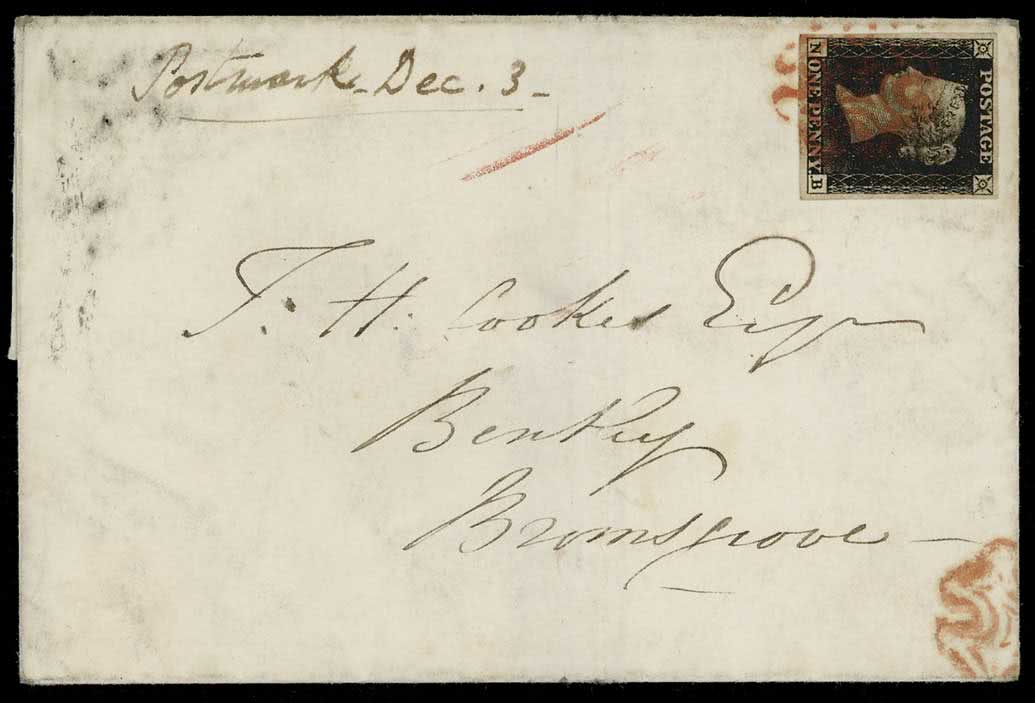 Postmark - Dec. 3 -
POSTAGE
N ONE PENNY. B
T. H. Cookes Esqr
Bentley
Bromsgrove -